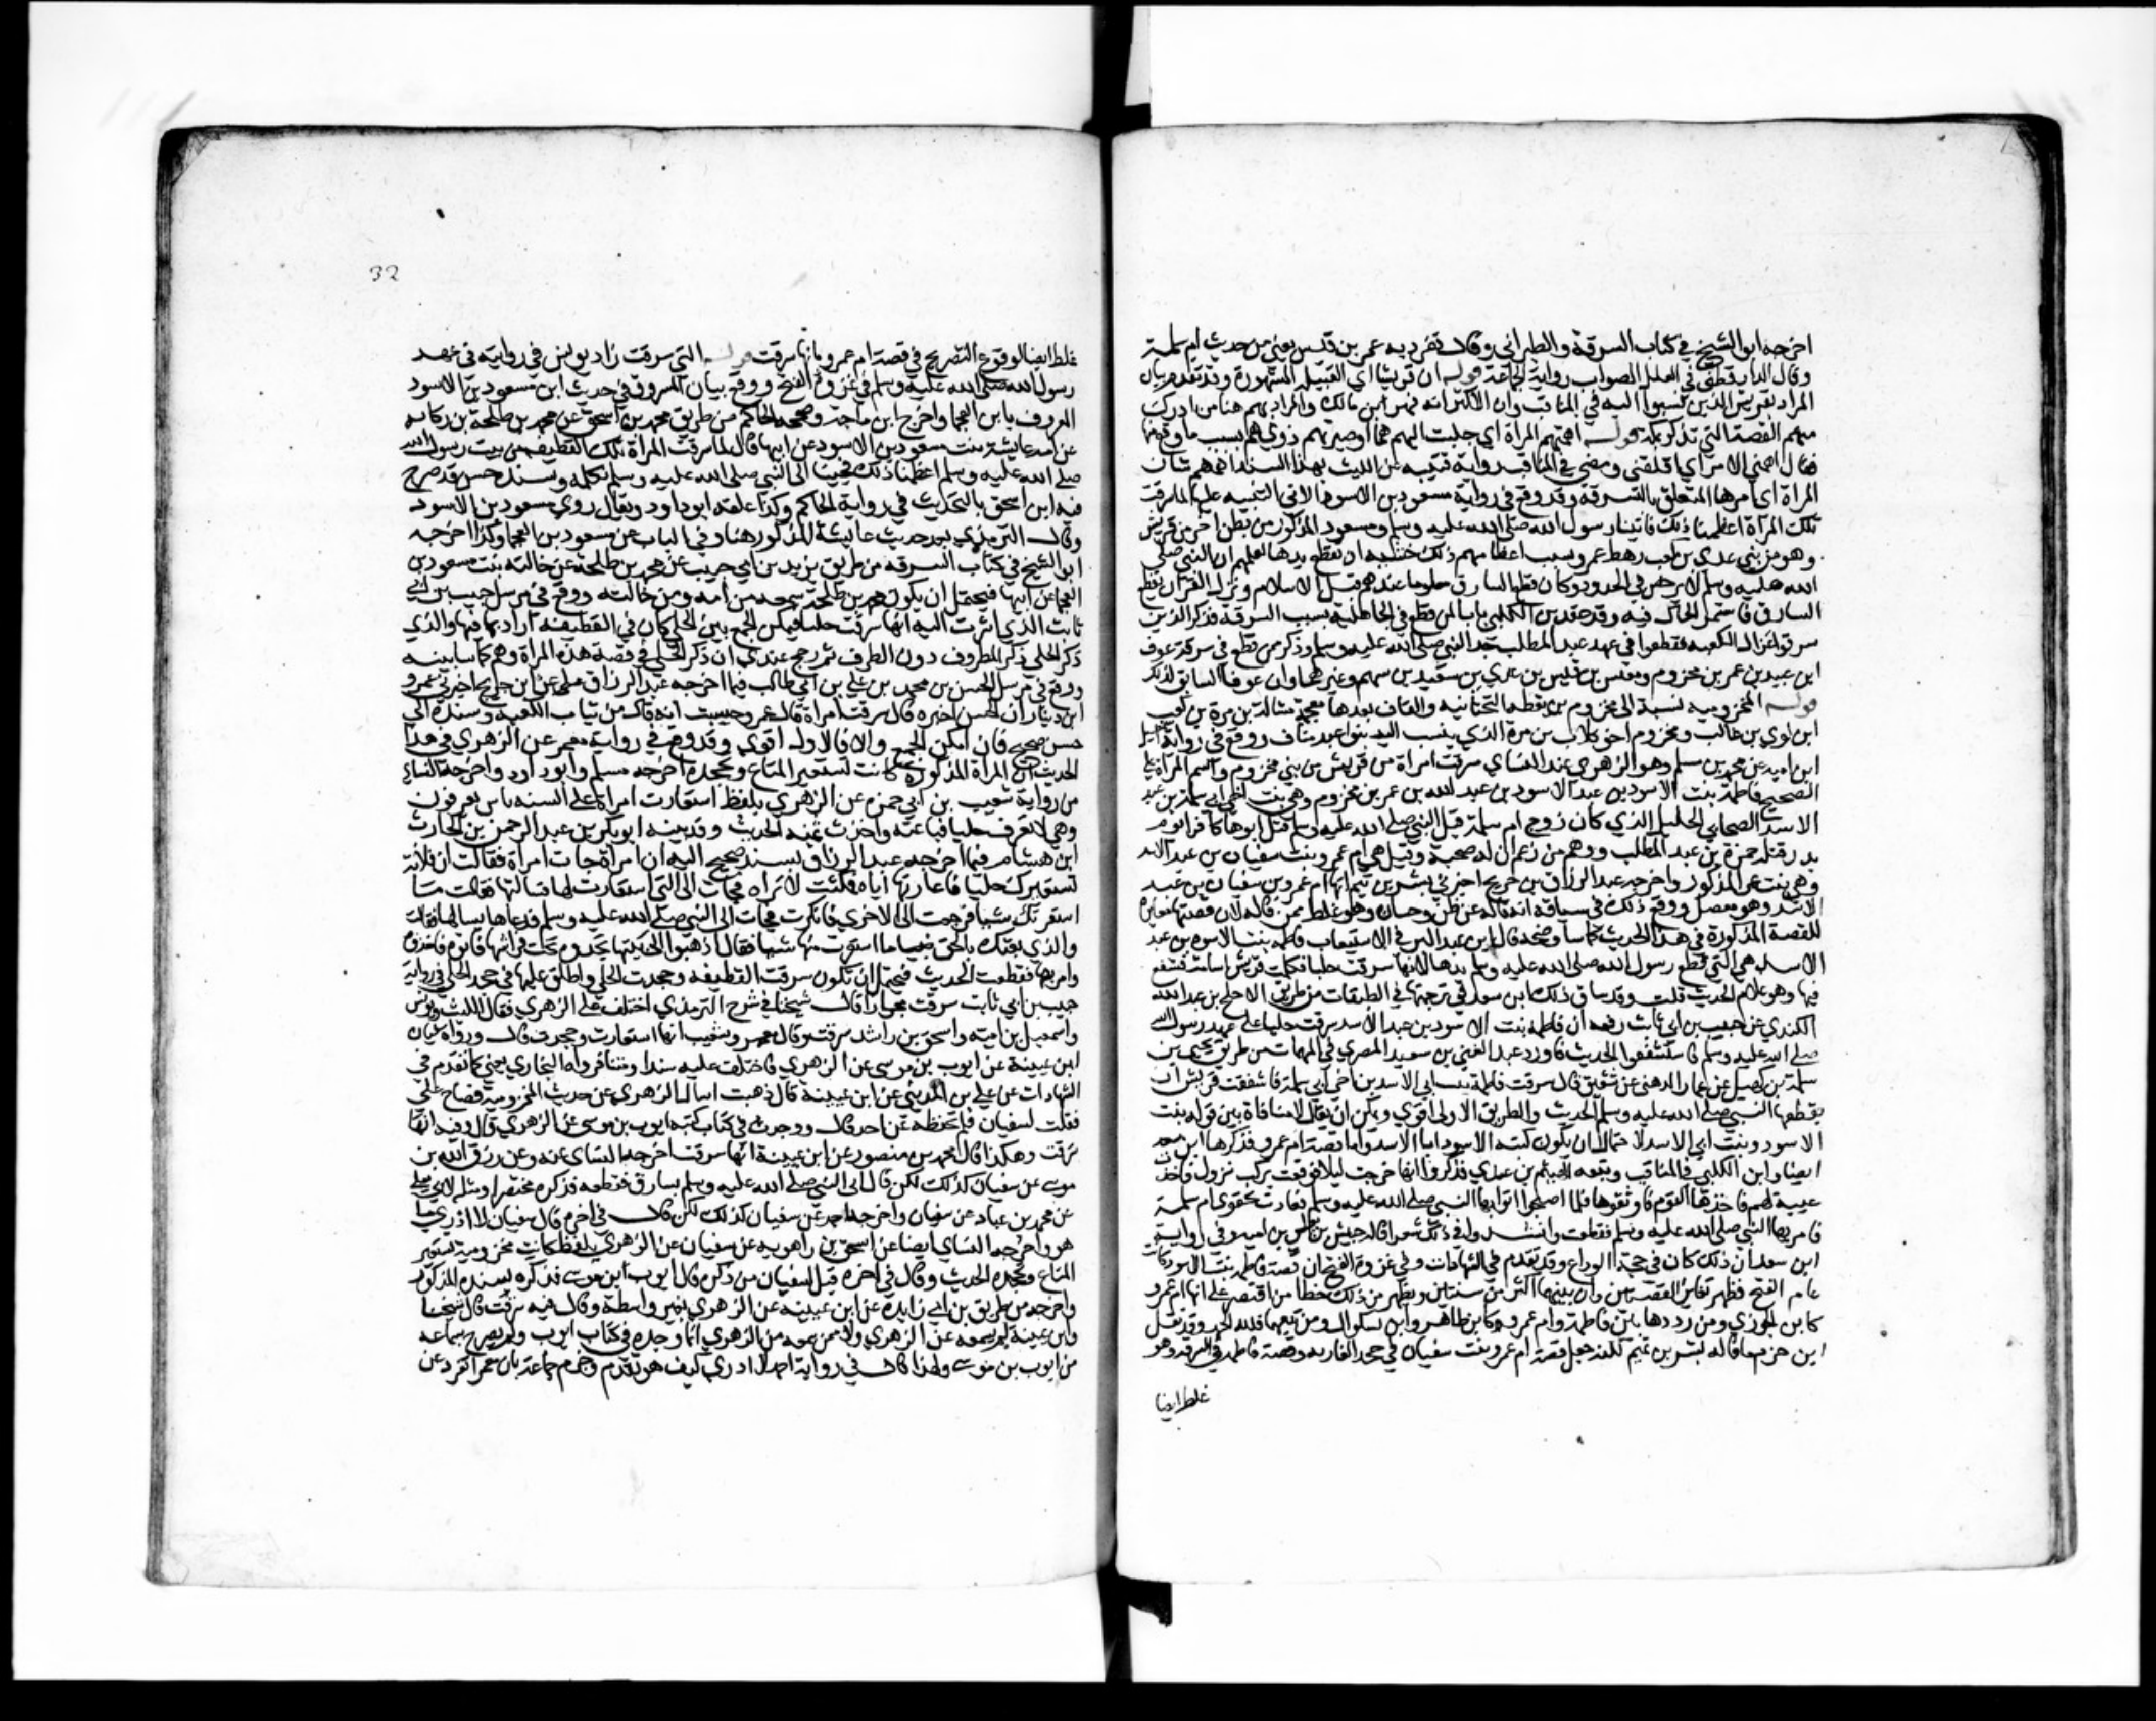 اخرجه ابو الشيخ في كتاب السرقة والطبراني وقال تفرد به عمر بن قيس يعني من حديث ام سلمة
وقال الدارقطني في العلل الصواب رواية الجماعة قوله ان قريشا اي القبيلة المشهورة وقد تقدم بيان
المراد بقريش الذين انتسبوا اليه في المناقب وان الاكثر انه فهر بن مالك والمراد بهم هنا من ادرك
منهم القصة التي تذكر بمكة قوله اهمتهم المراة اي جلبت اليهم هما او صيرتهم ذوي هم بسبب ما وقع منها
يقال اهمني الامر اي اقلقني ومضى في المناقب رواية قتيبة عن الليث بهذا السند اهمهم شان
المراة اي امرها المتعلق بالسرقة وقد وقع في رواية مسعود بن الاسود الاتي التنبيه عليها لما سرقت
تلك المراة اعظمنا ذلك فاتينا رسول الله صلى الله عليه وسلم ومسعود المذكور من بطن اخر من قريش
وهو من بني عدي بن كعب رهط عمر وسبب اعظامهم ذلك خشية ان تقطع يدها لعلمهم ان النبي صلى
الله عليه وسلم لا يرخص في الحدود وكان قطع السارق معلوما عندهم قبل الاسلام ونزل القران بقطع
السارق فاستمر الحال فيه وقد عقد بن الكلبي بابا لمن قطع في الجاهلية بسبب السرقة فذكر الذين
سرقوا غزال الكعبة فقطعوا في عهد عبد المطلب جد النبي صلى الله عليه وسلم وذكر من قطع في سرقة عوف
ابن عبيد بن عمر بن مخزوم ومقيس بن قيس بن عدي بن سعيد بن سهم وغيرهما وان عوفا السابق لذلك
قوله المخزومية نسبة الى مخزوم بن يقظة بالتحتانية والقاف بعدها معجمة مشالة بن مرة بن كعب
ابن لوي بن غالب ومخزوم اخو كلاب بن مرة الذي ينسب اليه بنو عبد مناف ووقع في رواية اسمعيل
ابن امية عن محمد بن مسلم وهو الزهري عند النساي سرقت امراة من قريش من بني مخزوم واسم المراة على
الصحيح فاطمة بنت الاسود بن عبد الاسود بن عبد الله بن عمر بن مخزوم وهي بنت اخي ابي سلمة بن عبد
الاسد الصحابي الجليل الذي كان زوج ام سلمة قبل النبي صلى الله عليه وسلم قتل ابوها كافرا يوم
بدر قتله حمزة بن عبد المطلب ووهم من زعم ان له صحبة وقيل هي ام عمرو بنت سفيان بن عبد الاسد
وهي بنت عم المذكور واخرجه عبد الرزاق بن جريج اخبرني بشر بن تيم انها ام عمرو بن سفيان بن عبد
الاسد وهو معضل ووقع ذلك في سياقه انه قاله عن ظن وحسبان وهو غلط ممن قاله لان قصتها مغايرة
للقصة المذكورة في هذا الحديث كما ساوضحه قال ابن عبد البر في الاستيعاب فاطمة بنت الاسود بن عبد
الاسد هي التي قطع رسول الله صلى الله عليه وسلم يدها لانها سرقت حليا فكلمت قريش اسامة فشفع
فيها وهو غلام الحديث قلت وقد ساق ذلك ابن سعد في ترجمتها في الطبقات من طريق الاجلح بن عبد الله
الكندي عن حبيب بن ابي ثابت رفعه ان فاطمة بنت الاسود بن عبد الاسد سرقت حليا على عهد رسول الله
صلى الله عليه وسلم فاستشفعوا الحديث فاورد عبد الغني بن سعيد المصري في المهمات من طريق يحيى بن
سلمة بن كهيل عن عمار الدهني عن شقيق قال سرقت فاطمة بنت ابي الاسد بن اخي ابي سلمة فاشفقت قريش ان
يقطعها النبي صلى الله عليه وسلم الحديث والطريق الاولى اقوى ويمكن ان يقال لا منافاة بين قوله بنت
الاسود وبنت ابي الاسد لاحتمال ان يكون كنية الاسود ابا الاسد واما قصة ام عمرو فذكرها ابن سعد
ايضا وابن الكلبي في المناقب وتبعه الهيثم بن عدي فذكروا انها خرجت ليلا فوقعت بركب نزول فاخذت
عيبة لهم فاخذها القوم فاوثقوها فلما اصبحوا اتوا بها النبي صلى الله عليه وسلم فعادت بحقوي ام سلمة
فامر بها النبي صلى الله عليه وسلم فقطعت وانشدوا في ذلك شعرا قاله خنيس بن يعلى بن امية وفي رواية
ابن سعد ان ذلك كان في حجة الوداع وقد تقدم في الشهادات وفي غزوة الفتح ان قصة فاطمة بنت الاسود كانت
عام الفتح فظهر تغاير القصتين وان بينهما اكثر من سنتين ويظهر من ذلك خطا من اقتصر على انها ام عمرو
كابن الجوزي ومن رددها بين فاطمة وام عمرو كابن طاهر وابن بشكوال ومن تبعهما فلله الحمد وقد نقل
ابن حزم ما قاله بشر بن تيم لكنه جعل قصة ام عمرو بنت سفيان في جحد العارية وقصة فاطمة في السرقة وهو
غلط ايضا
32
غلط ايضا لوقوع التصريح في قصة ام عمرو بانها سرقت قوله التي سرقت زاد يونس في روايته في عهد
رسول الله صلى الله عليه وسلم في غزوة الفتح ووقع بيان المسروق في حديث ابن مسعود بن الاسود
المعروف بابن العجما واخرج ابن ماجة وصححه الحاكم من طريق محمد بن اسحق عن محمد بن طلحة بن ركانة
عن امه عايشة بنت مسعود بن الاسود عن ابيها قال لما سرقت المراة تلك القطيفة من بيت رسول الله
صلى الله عليه وسلم اعظمنا ذلك فجينا الى النبي صلى الله عليه وسلم نكلمه وسنده حسن قد صرح
فيه ابن اسحق بالتحديث في رواية الحاكم وكذا علقه ابو داود ويقال روى مسعود بن الاسود
وقال الترمذي بعد حديث عايشة المذكور هنا وفي الباب عن مسعود بن العجما وكذا اخرجه
ابو الشيخ في كتاب السرقة من طريق يزيد بن ابي حبيب عن محمد بن طلحة عن خالته بنت مسعود بن
العجما عن ابيها فيحتمل ان يكون محمد بن طلحة سمعه من امه ومن خالته ووقع في مرسل حبيب بن ابي
ثابت الذي اشرت اليه انها سرقت حليا فيمكن الجمع بين الحلي كان في القطيفة اراد بما فيها والذي
ذكر الحلي ذكر المظروف دون الظرف ثم رجح عندي ان ذكر الحلي في قصة هذه المراة وهم كما سابينه
ووقع في مرسل الحسن بن محمد بن علي بن ابي طالب فيما اخرجه عبد الرزاق عن ابن جريج اخبرني عمرو
ابن دينار ان الحسن اخبره قال سرقت امراة قال عمرو وحسبت انه قال من ثياب الكعبة وسنده الى
حسن صحيح فان امكن الجمع والا فالاول اقوى وقد وقع في رواية معمر عن الزهري في هذا
الحديث ان المراة المذكورة كانت تستعير المتاع وتجحده اخرجه مسلم وابو داود واخرجه النساي
من رواية شعيب بن ابي حمزة عن الزهري بلفظ استعارت امراة على السنة ناس يعرفون
وهي لا تعرف حليا فباعته واخذت ثمنه الحديث وقد بينه ابو بكر بن عبد الرحمن بن الحارث
ابن هشام فيما اخرجه عبد الرزاق بسند صحيح اليه ان امراة جات امراة فقالت ان فلانة
تستعيرك حليا فاعارتها اياه فمكثت لا تراه فجات الى التي استعارت لها فسالتها فقالت ما
استعرتك شيا فرجعت الى الاخرى فانكرت فجات الى النبي صلى الله عليه وسلم فدعاها فسالها فقالت
والذي بعثك بالحق ما استعرت منها شيا فقال اذهبوا الى بيتها تجدوه تحت فراشها فاتوه فاخذوه
وامر بها فقطعت الحديث فيحتمل ان تكون سرقت القطيفة وجحدت الحلي واطلق عليها في جحد الحلي في رواية
حبيب بن ابي ثابت سرقت مجازا قال شيخنا في شرح الترمذي اختلف على الزهري فقال الليث ويونس
واسمعيل بن امية واسحق بن راشد سرقت وقال معمر وشعيب انها استعارت وجحدت قال ورواه سفيان
ابن عيينة عن ايوب بن موسى عن الزهري فاختلف عليه سندا ومتنا فرواه البخاري يعني كما تقدم في
الشهادات عن علي بن المديني عن ابن عيينة قال ذهبت اسال الزهري عن حديث المخزومية فصاح علي
فقلت لسفيان فلم تحفظه عن احد قال ووجدت في كتاب كتبه ايوب بن موسى عن الزهري قال وفيه انها
سرقت وهكذا قال محمد بن منصور عن ابن عيينة انها سرقت اخرجه النساي عنه وعن رزق الله بن
موسى عن سفيان كذلك لكن قال اتي النبي صلى الله عليه وسلم بسارق فقطعه فذكره مختصرا ومثله لابي يعلى
عن محمد بن عباد عن سفيان واخرجه احمد عن سفيان كذلك لكن قال في اخره قال سفيان لا ادري ما
هو واخرجه النساي ايضا عن اسحق بن راهويه عن سفيان عن الزهري بلفظ كانت مخزومية تستعير
المتاع وتجحده الحديث وقال في اخره قيل لسفيان من ذكره قال ايوب بن موسى فذكره بسنده المذكور
واخرجه من طريق بن ابي زايدة عن ابن عيينة عن الزهري بغير واسطة وقال فيه سرقت قال شيخنا
وابن عيينة لم يسمعه عن الزهري ولا ممن سمعه من الزهري انما وجده في كتاب ايوب ولم يصرح بسماعه
من ايوب بن موسى ولهذا قال في رواية احمد لا ادري كيف هو تقدم وجزم جماعة بان معمرا تفرد عن